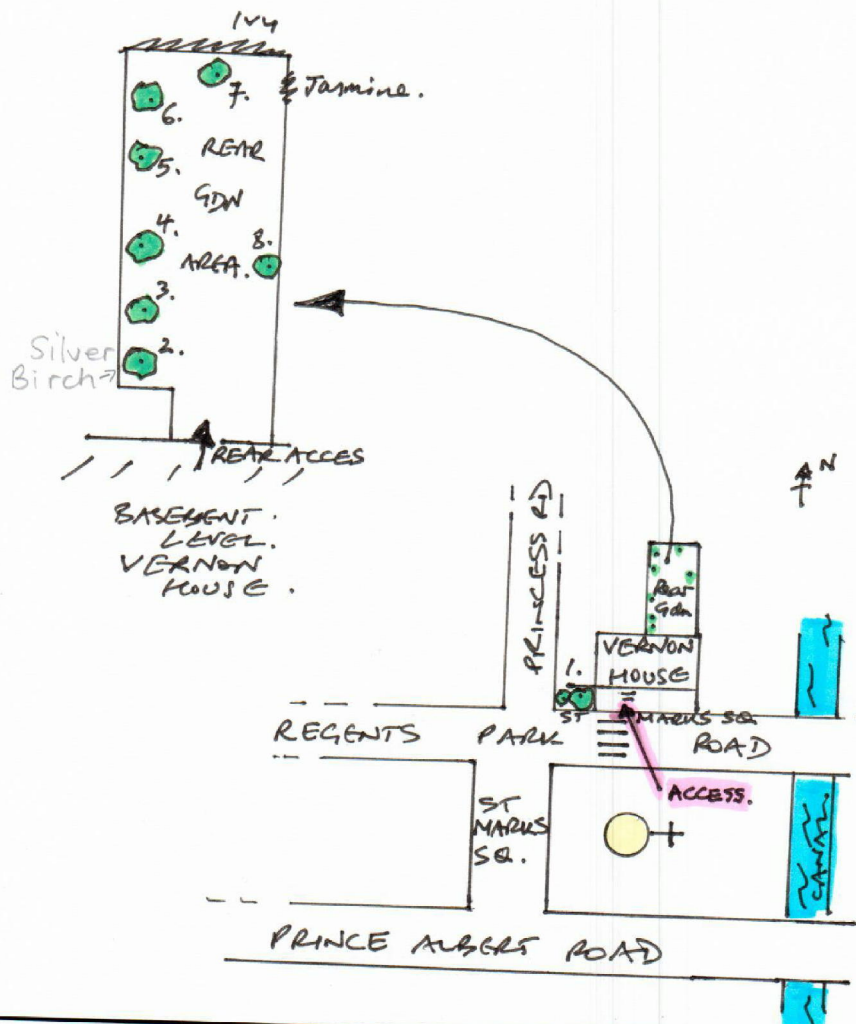 Ivy
7.
Jasmine.
6.
REAR
5.
GDN
4.
8.
AREA.
3.
2.
Silver
Birch
REAR ACCES
BASEMENT.
LEVEL.
VERNON
HOUSE.
N
PRINCESS RD
Rear
Gdn
VERNON
HOUSE
1.
ST MARKS SQ.
REGENTS PARK ROAD
ACCESS.
ST
MARKS
SQ.
CANAL
PRINCE ALBERT ROAD